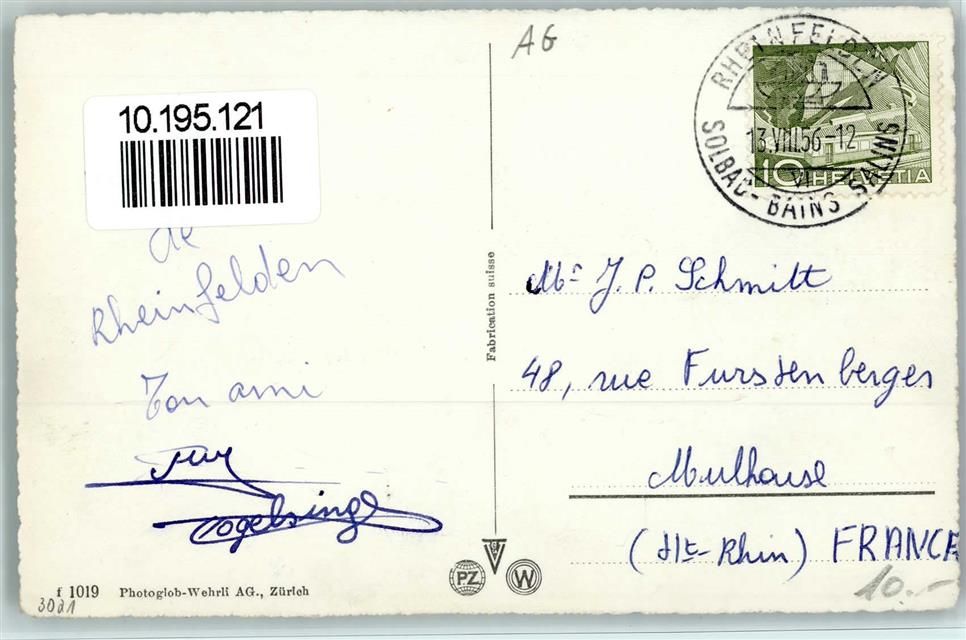 AG
10.195.121
RHEINFELDEN
13.VIII.56-12
VI
SOLBAD - BAINS SALINS
10 HELVETIA
de
Rheinfelden
Ton ami
Vogelsingl
Fabrication suisse
Mr J. P. Schmitt
48, rue Furstenberger
Mulhouse
(Ht-Rhin) FRANCE
10.-
PZ
W
f 1019 Photoglob-Wehrli AG., Zürich
3021